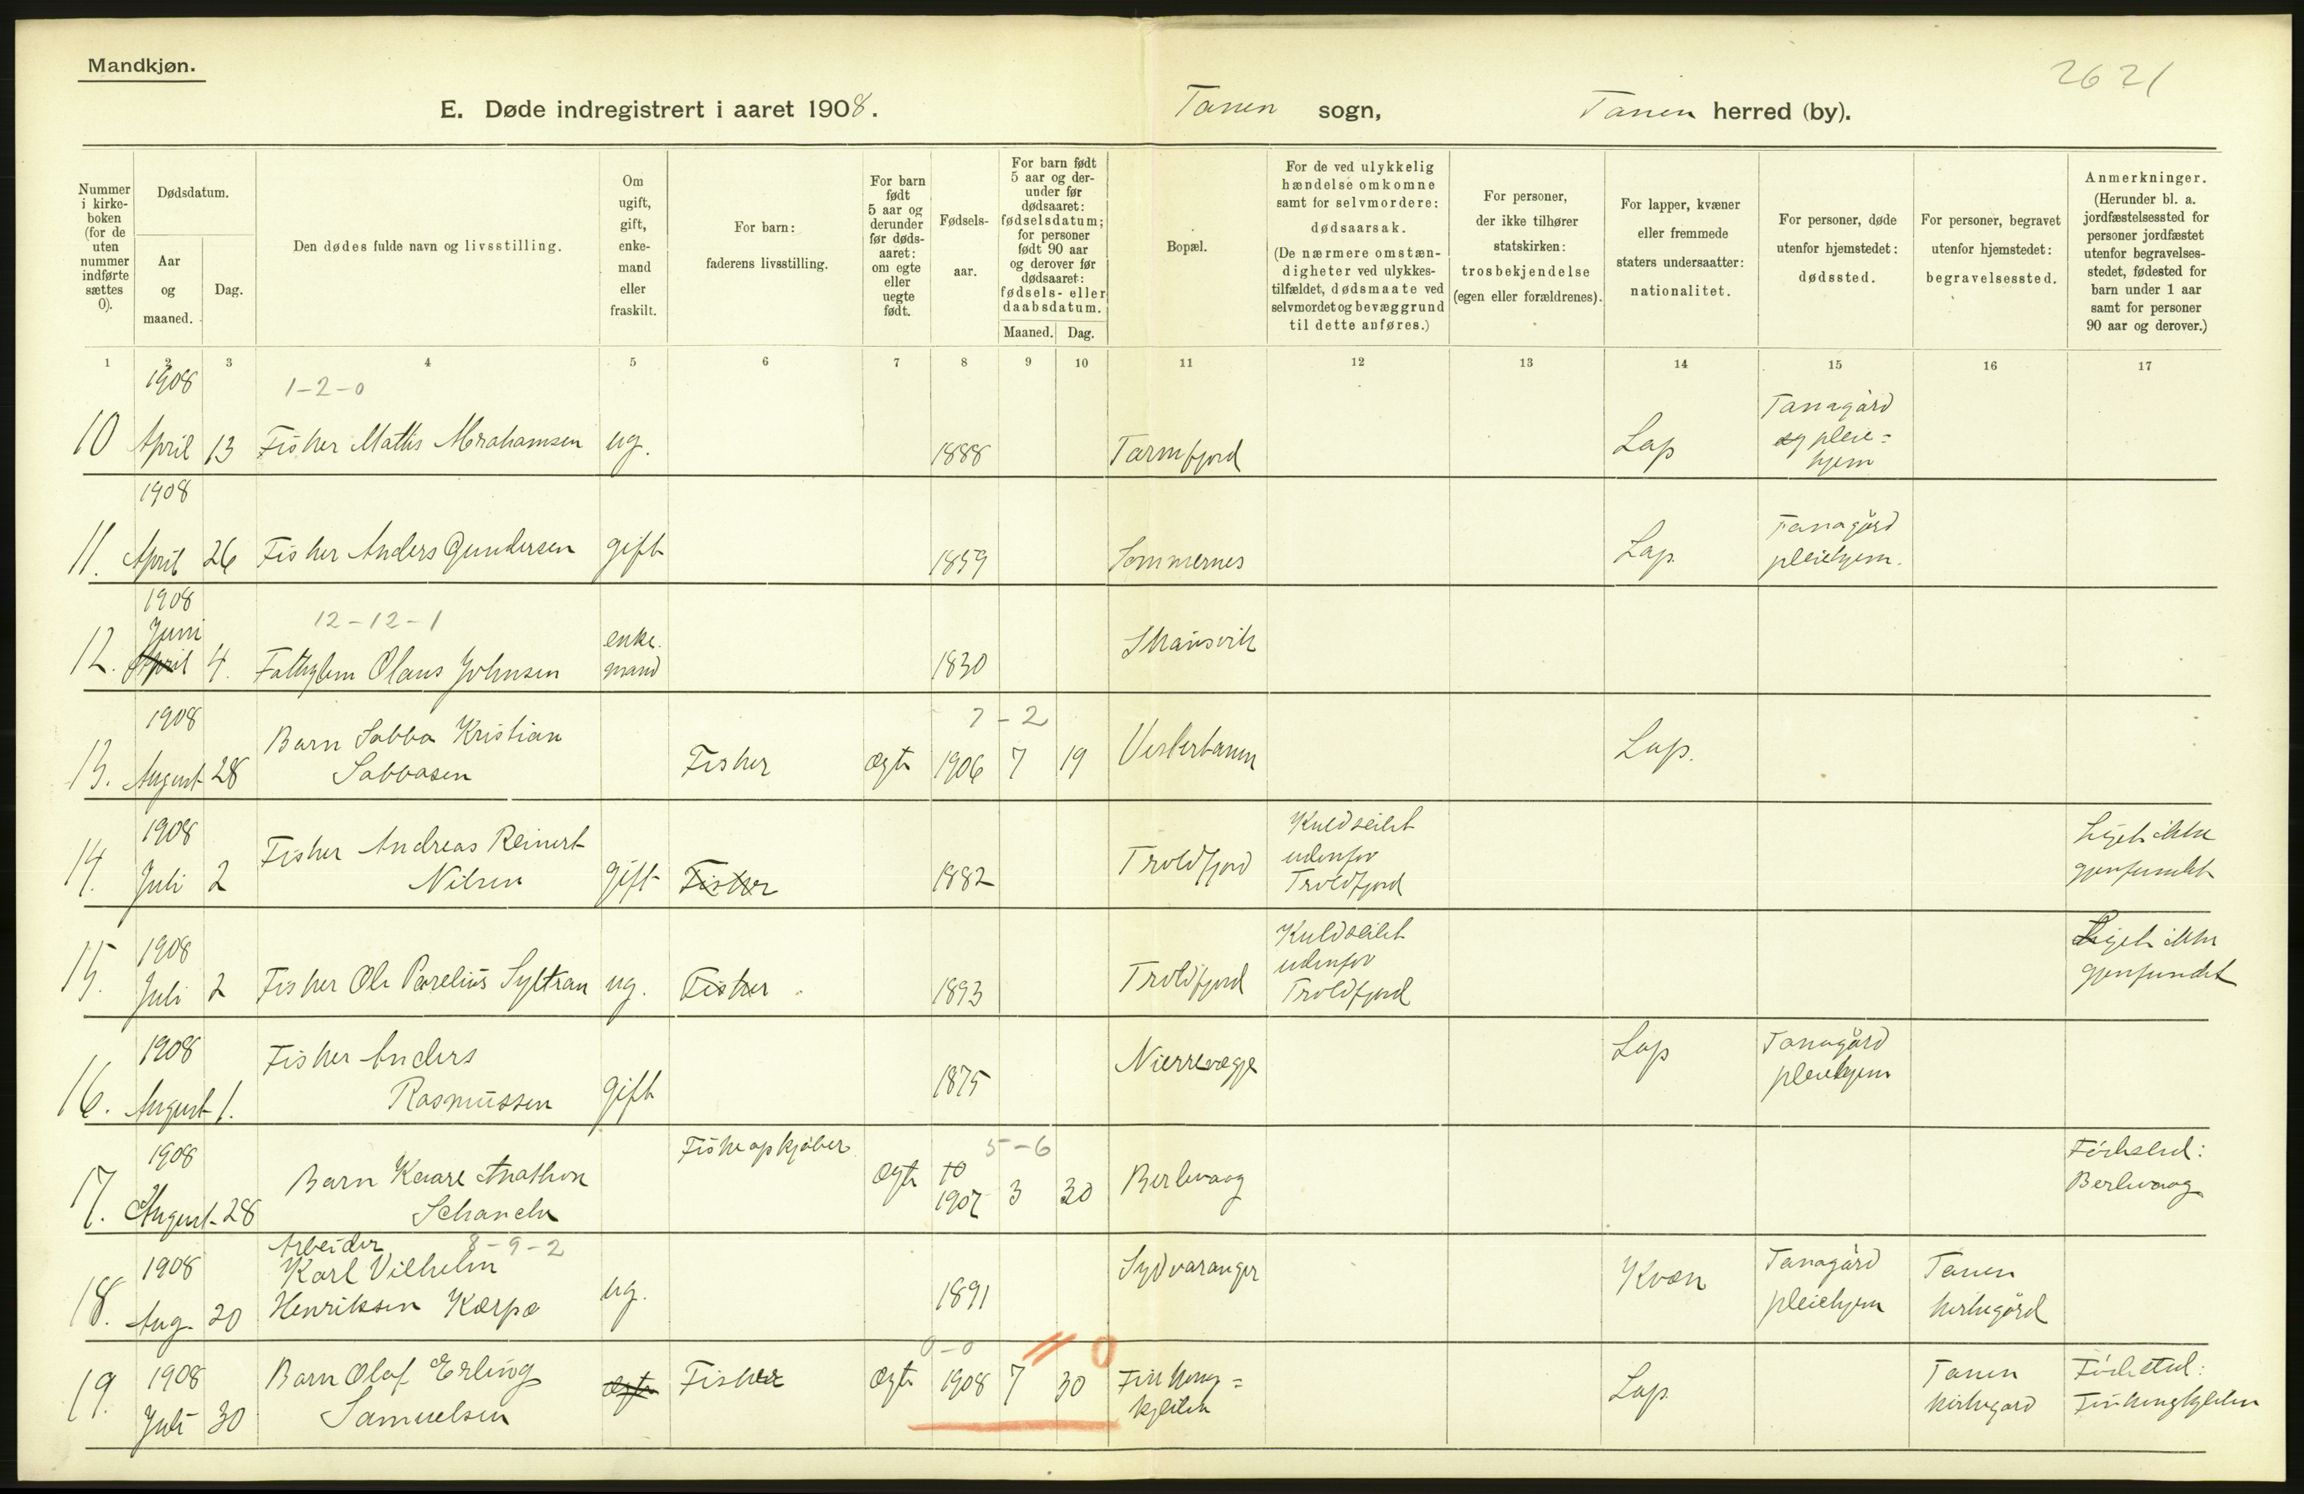 Mandkjøn.
2621
E. Døde indregistrert i aaret 1908. Tanen sogn, Tanen herred (by).
Nummer i kirke-boken (for de uten nummer indførte sættes 0).
Dødsdatum.
Aar og maaned.
Dag.
Den dødes fulde navn og livsstilling.
Om ugift, gift, enke-mand eller fraskilt.
For barn: faderens livsstilling.
For barn født 5 aar og derunder før døds-aaret: om egte eller uegte født.
Fødsels-aar.
For barn født 5 aar og der-under før dødsaaret: fødselsdatum; for personer født 90 aar og derover før dødsaaret: fødsels- eller daabsdatum.
Maaned. Dag.
Bopæl.
For de ved ulykkelig hændelse omkomne samt for selvmordere: dødsaarsak. (De nærmere omstæn-digheter ved ulykkes-tilfældet, dødsmaate ved selvmordet og bevæggrund til dette anføres.)
For personer, der ikke tilhører statskirken: trosbekjendelse (egen eller forældrenes).
For lapper, kvæner eller fremmede staters undersaatter: nationalitet.
For personer, døde utenfor hjemstedet: dødssted.
For personer, begravet utenfor hjemstedet: begravelsessted.
Anmerkninger. (Herunder bl. a. jordfæstelsessted for personer jordfæstet utenfor begravelses-stedet, fødested for barn under 1 aar samt for personer 90 aar og derover.)
1 2 3 4 5 6 7 8 9 10 11 12 13 14 15 16 17
1908 1-2-0
10 April 13 Fisker Mathis Abrahamsen ug. 1888 Tarmfjord Lap Tanagård og pleie=hjem
1908
11. April 26 Fisker Anders Gundersen gift 1859 Sommernes Lap. Tanagård pleiehjem.
1908 12-12-1
12. Juni April 4. Fattiglem Olaus Johnsen enke.mand 1830
1908 7-2
13. August 28 Barn Sabba Kristian Sabbasen Fisker Ægte 1906 7 19 Vestertanen Lap.
1908
14. Juli 2 Fisker Andreas Reinert Nilsen gift Fisker 1882 Troldfjord Kuldseilet udenfor Troldfjord Liget ikke gjenfundet
1908
15. Juli 2 Fisker Ole Parelius Syltran ug. Fisker 1893 Troldfjord Kuldseilet udenfor Troldfjord Liget ikke gjenfundet
1908
16. August 1. Fisker Anders Rasmussen gift 1875 Lap Tanagård pleiehjem
1908 5-6
17. August 28 Barn Kaare Anathon Schanche Fiskeopkjøber Ægte 1907 3 30 Berlevaag Fødested: Berlevaag
1908 8-9-2
18. Aug. 20 Arbeider Karl Vilhelm Henriksen Karpa ug. 1891 Sydvaranger Kvæn Tanagård pleiehjem Tanen kirkegård
1908 0-0 11 0
19. Juli 30 Barn Olaf Erling Samuelsen Ægte Fisker Ægte 1908 7 30 Lap. Tanen kirkegård Fødested: